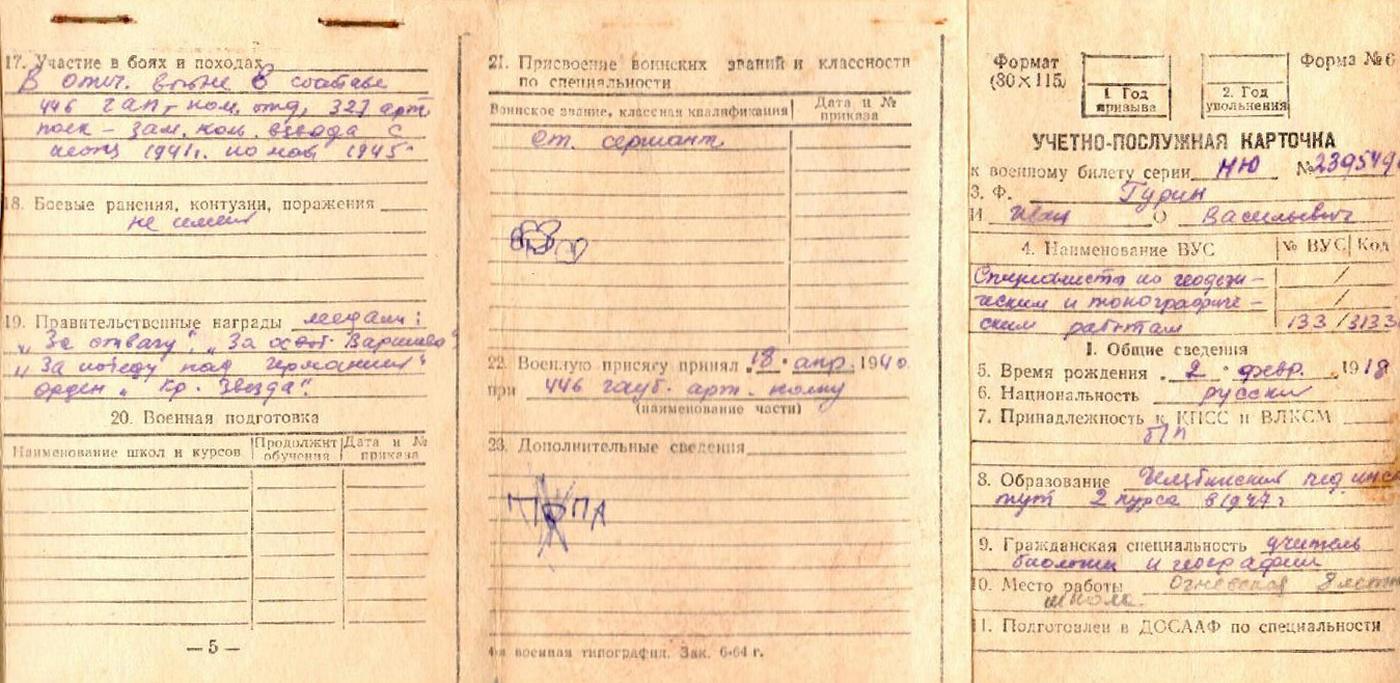 17. Участие в боях и походах
В отеч. войне в составе
446 гап, ком. отд, 327 арт
полк – зам. ком. взвода с
1941г. по май 1945
18. Боевые ранения, контузии, поражения
не имел
19. Правительственные награды медали:
„За отвагу", „За освоб. Варшавы"
„За победу над Германией"
орден „Кр. Звезда".
20. Военная подготовка
Наименование школ и курсов
Продолжит обучения
Дата и № приказа
— 5 —
21. Присвоение воинских званий и классности
по специальности
Воинское звание, классная квалификация
Дата и № приказа
ст. сержант
22. Военную присягу принял 18. апр. 1940
при 446 гауб. арт. полку
(наименование части)
23. Дополнительные сведения
ПАПА
военная типография. Зак. 6-64 г.
Формат
(80×115)
1. Год призыва
2. Год увольнения
Форма № 6
УЧЕТНО-ПОСЛУЖНАЯ КАРТОЧКА
к военному билету серии НЮ №239549
3. Ф. Гурин
И Иван О Васильевич
4. Наименование ВУС
№ ВУС Код
Специалист по геодези-
ческим и топографиче- /
ским работам 133/3133
I. Общие сведения
5. Время рождения 2 февр. 1918
6. Национальность русский
7. Принадлежность к КПСС и ВЛКСМ
б/п
8. Образование Челябинский пед инс
тут 2 курса в 1947г
9. Гражданская специальность учитель
биологии и географии
10. Место работы Огневская 8 летн
школа
11. Подготовлен в ДОСААФ по специальности